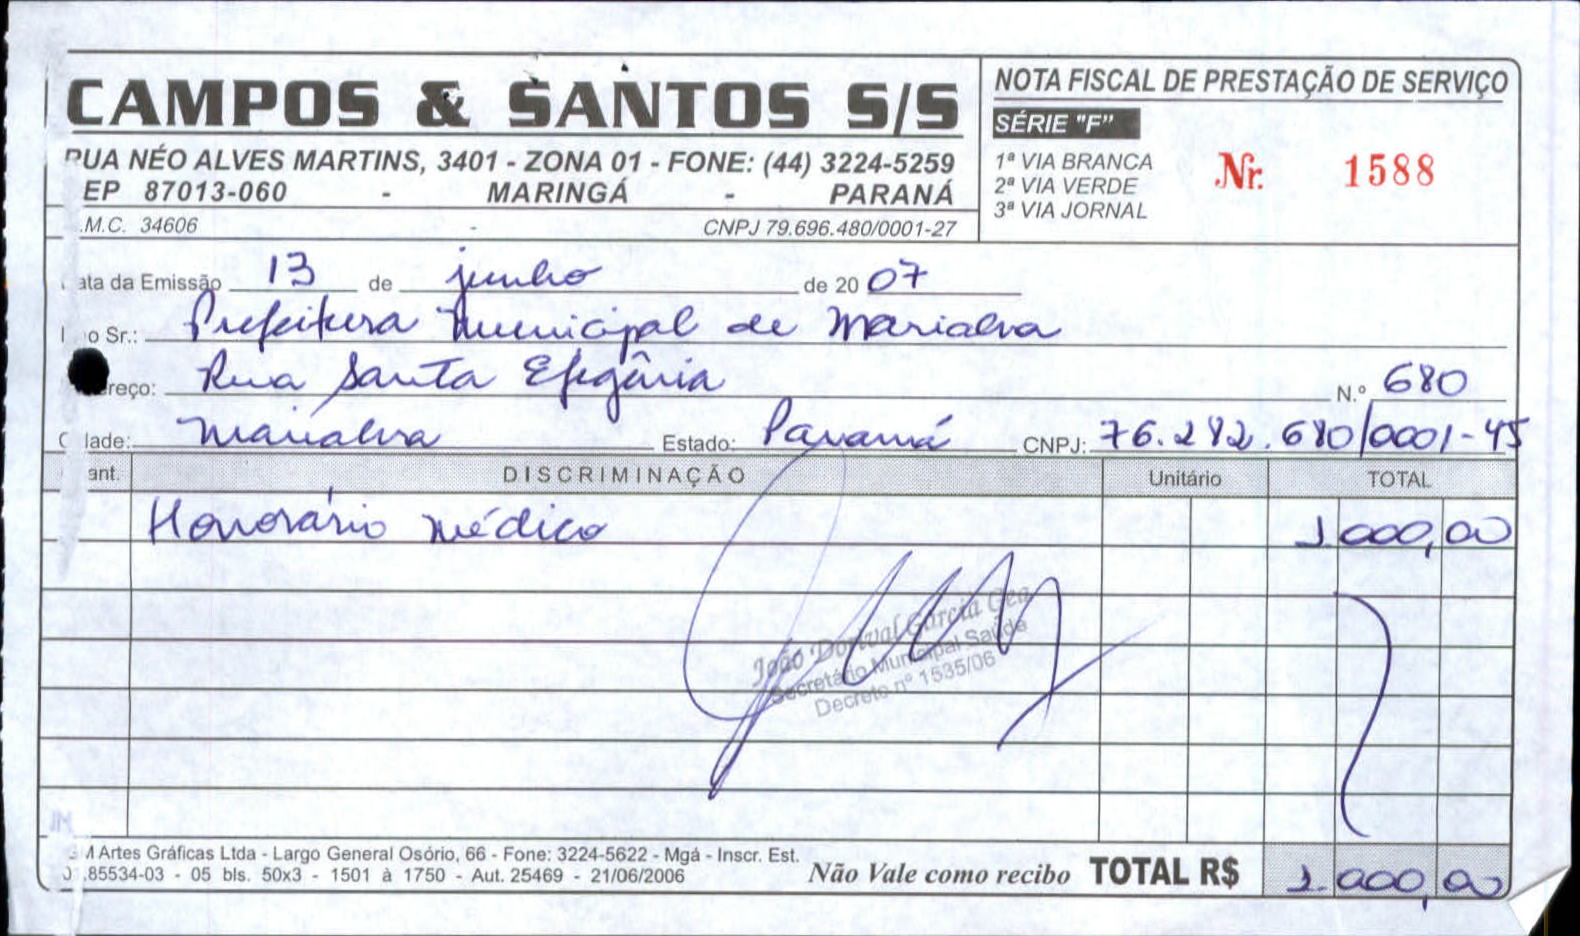 CAMPOS & SANTOS S/S
RUA NÉO ALVES MARTINS, 3401 - ZONA 01 - FONE: (44) 3224-5259
EP 87013-060 - MARINGÁ - PARANÁ
.M.C. 34606 - CNPJ 79.696.480/0001-27
NOTA FISCAL DE PRESTAÇÃO DE SERVIÇO
SÉRIE "F"
1ª VIA BRANCA
2ª VIA VERDE
3ª VIA JORNAL
Nr. 1588
ata da Emissão 13 de junho de 2007
o Sr.: Prefeitura Municipal de Marialva
reço: Rua Santa Efigênia N.º 680
dade: Marialva Estado: Paraná CNPJ: 76.282.680/0001-45
ant. DISCRIMINAÇÃO Unitário TOTAL
Honorário médico 1.000,00
João Dorival Garcia Gea
Secretário Municipal Saúde
Decreto nº 1535/06
M Artes Gráficas Ltda - Largo General Osório, 66 - Fone: 3224-5622 - Mgá - Inscr. Est.
85534-03 - 05 bls. 50x3 - 1501 à 1750 - Aut. 25469 - 21/06/2006
Não Vale como recibo TOTAL R$ 1.000,00